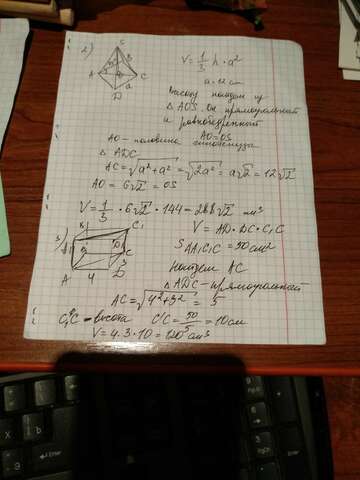 2)
S
A
B
C
D
O
a
V = 1/3 h · a²
a = 12 см
Высоту найдем из
△ AOS. Он прямоугольный
и равнобедренный
AO = OS
AO - половина гипотенузы
△ ADC
AC = √a² + a² = √2a² = a√2 = 12√2
AO = 6√2 = OS
V = 1/3 · 6√2 · 144 = 288√2 см³
3)
B₁
C₁
A₁
D₁
B
C
A
4
3
D
V = AD · DC · C₁C
S AA₁C₁C = 50 см²
Найдем AC
△ ADC - прямоугольный
AC = √4² + 3² = 5
C₁C - высота C₁C = 50/5 = 10 см
V = 4 · 3 · 10 = 120 см³